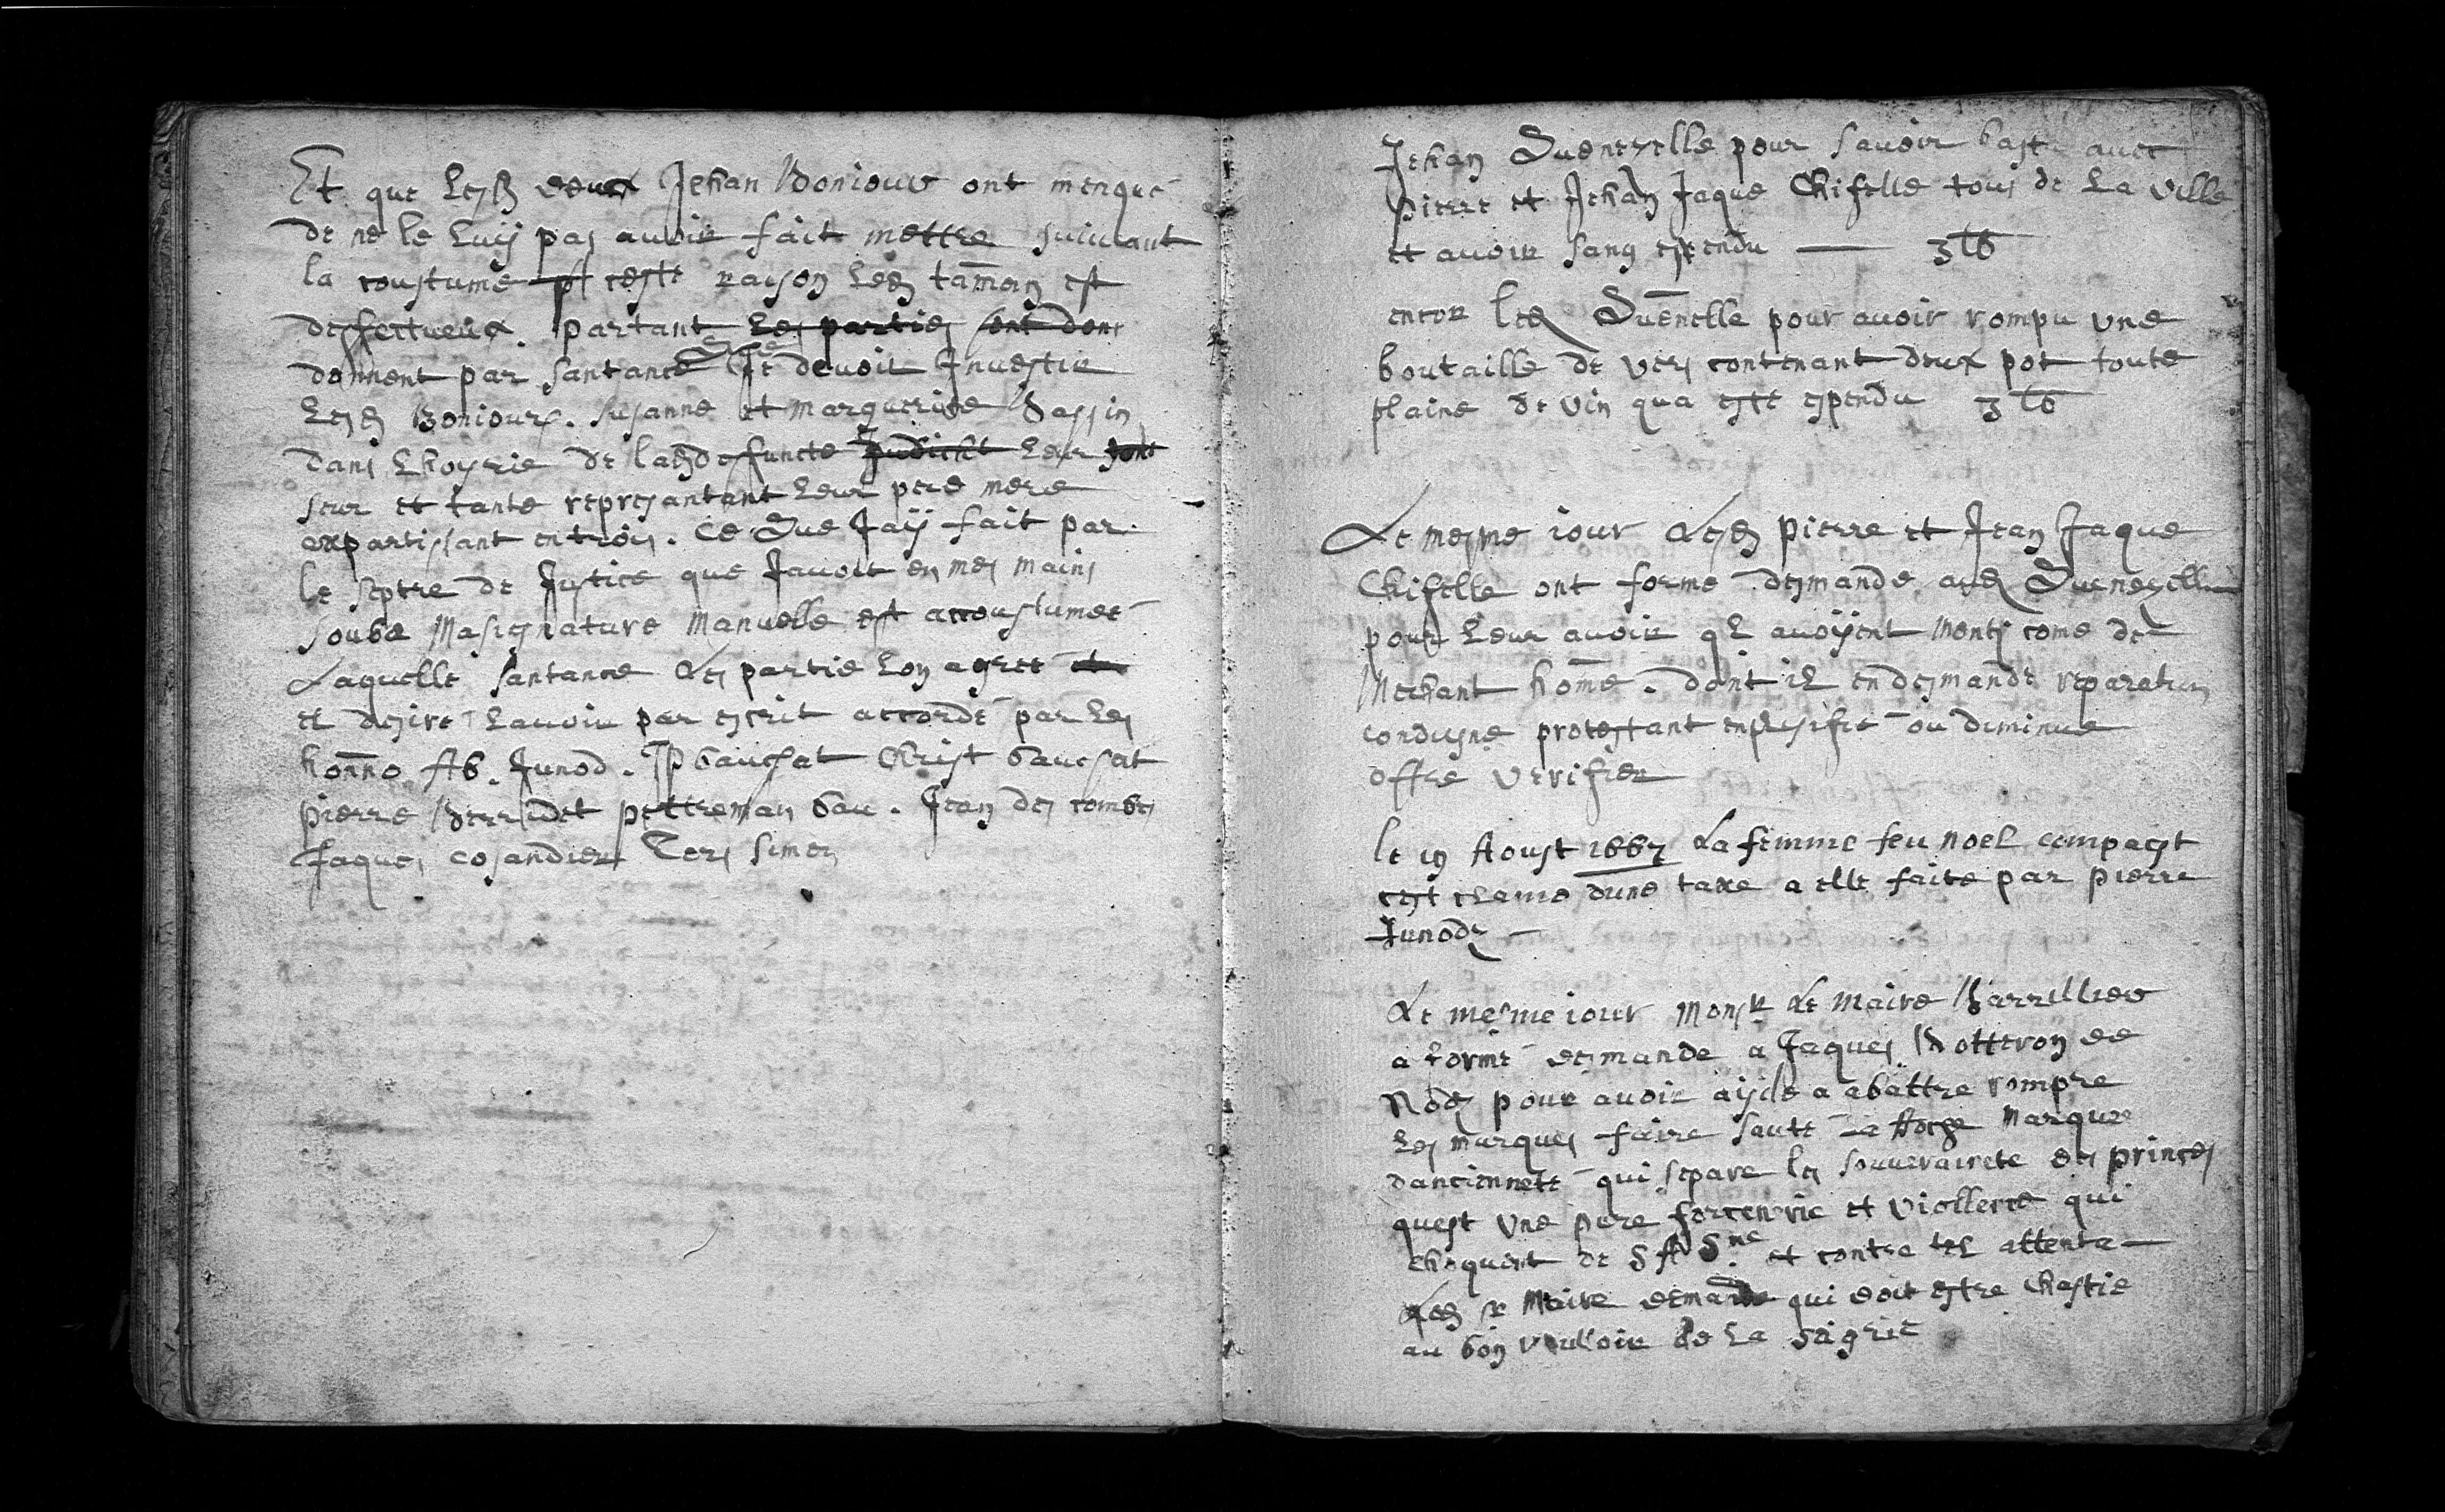 Et que lesd deux Jehan Boniour ont menqué
de ne le luy pas avoir fait mettre suivant
la coustume pr ceste raison led tamen est
desfectueux. partant les parties sont dont
donnent par santance que Je devoit Jnvestir
lesd Boniours. Susanne et marguerite Bassin
dans Lhoyrie de lad deffuncte Judicht Leur
seur et tante represantant leur pere mere
expartissant en trois. Ce Que Jaÿ fait par
le septre de Justice que Javoit en mes mains
soube Masignature Manuelle est accoustumée
Laquelle santance les partie lon agreé et
et desiré Lavoir par escrit accordé par les
honno Ab. Junod. Jp bauchat Christ bauchat
pierre petreman bau. Jean des combes
Jaques cosandier Ters simon
Jehan Quenevelle pour savoir bastu avec
Pierre et Jehan Jaque Chifelle tous de La ville
et avoir sang espendu — 3 lb
encor led Quenelle pour avoir rompu une
boutaille de vers contenant deux pot toute
plaine de vin qua esté espendu 3 lb
Le mesme iour Lesd Pierre et Jean Jaque
Chifelle ont formé desmande aud Quenevelle
pour leur avoir qL avoÿent Menty come de
Mechant home. dont il en desmande reparation
condigne protestant en plusifié ou diminue
offre verifier
le 19 Aoust 1667 La femme feu Noel compagst
cest clamé dune taxe a elle faite par pierre
Junod —
Le mesme iour Monsr Le Maire Barrillier
a formé desmande a Jaques Botteron de
Nod pour avoir ayde a abattre rompre
les marques faire sauté la Roche Marque
dancienneté qui separe les souverainete des princes
quest une pure forcenrie et viollence qui
choquent de S A Sme et contre tel attenta —
Led sr Maire demande qui doit estre Chastié
au bon voulloir de La Sêigrie